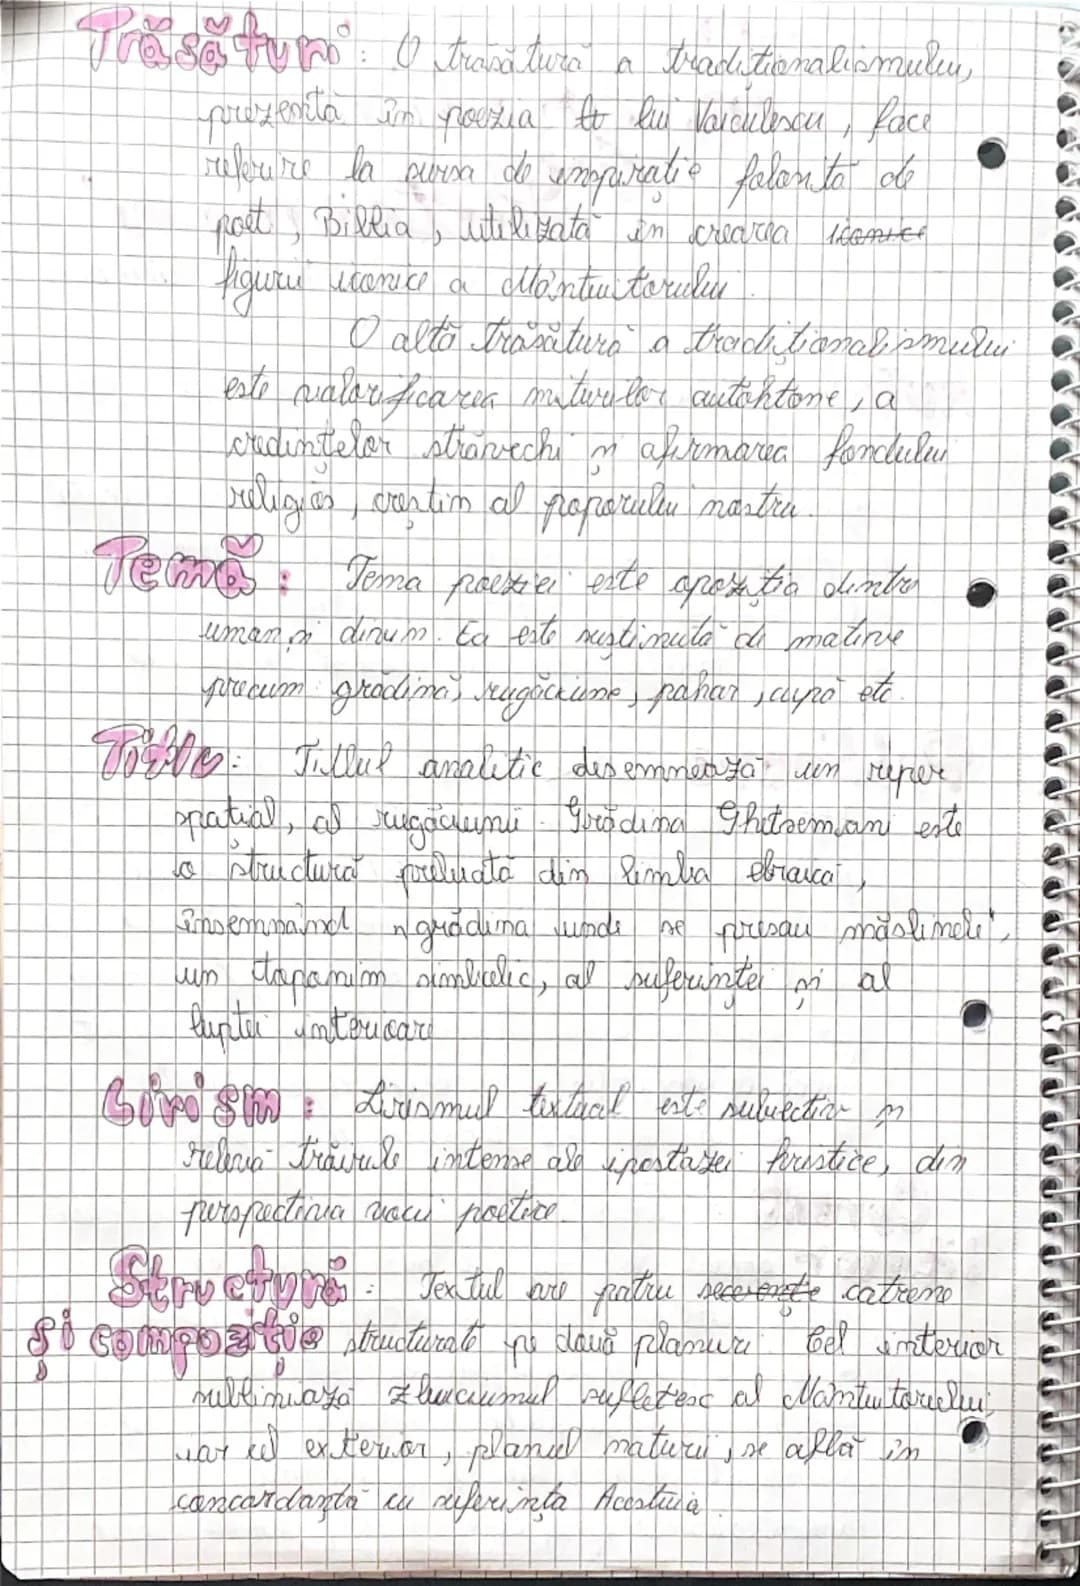 Trăsături: O trăsătură a tradiționalismului,
prezentă în poezia lui Voiculescu, face
referire la sursa de inspirație folosită de
poet, Biblia, utilizată în crearea iconice
figurii iconice a Mântuitorului.
O altă trăsătură a tradiționalismului
este valorificarea miturilor autohtone, a
credințelor străvechi și afirmarea fondului
religios, creștin al poporului nostru.
Temă: Tema poeziei este opoziția dintre
uman și divin. Ea este susținută de motive
precum: grădina, rugăciune, pahar, cupă etc.
Titlu: Titlul analitic desemnează un reper
spațial, al rugăciunii. Grădina Ghetsemani este
o structură preluată din limba ebraică,
însemnând „grădina unde se presau măslinele",
un toponim simbolic, al suferinței și al
luptei interioare
Lirism: Lirismul textual este subiectiv și
relevă trăirile intense ale ipostazei hristice, din
perspectiva vocii poetice.
Structură Textul are patru secvențe catrene
și compoziție: structurate pe două planuri. Cel interior
subliniază zbuciumul sufletesc al Mântuitorului,
iar cel exterior, planul naturii, se află în
concordanță cu suferința Acestuia.